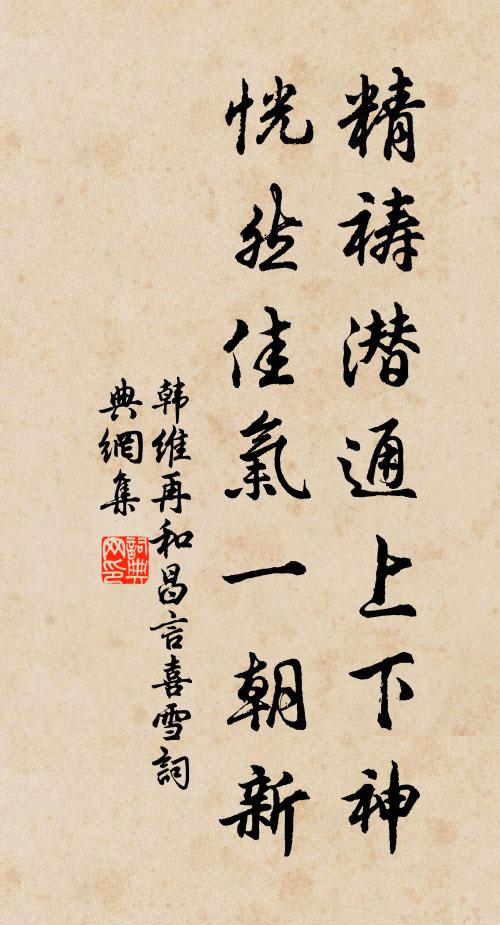 精祷潜通上下神
恍然佳氣一朝新
韩维再和昌言喜雪詞
典網集
詞典
网印